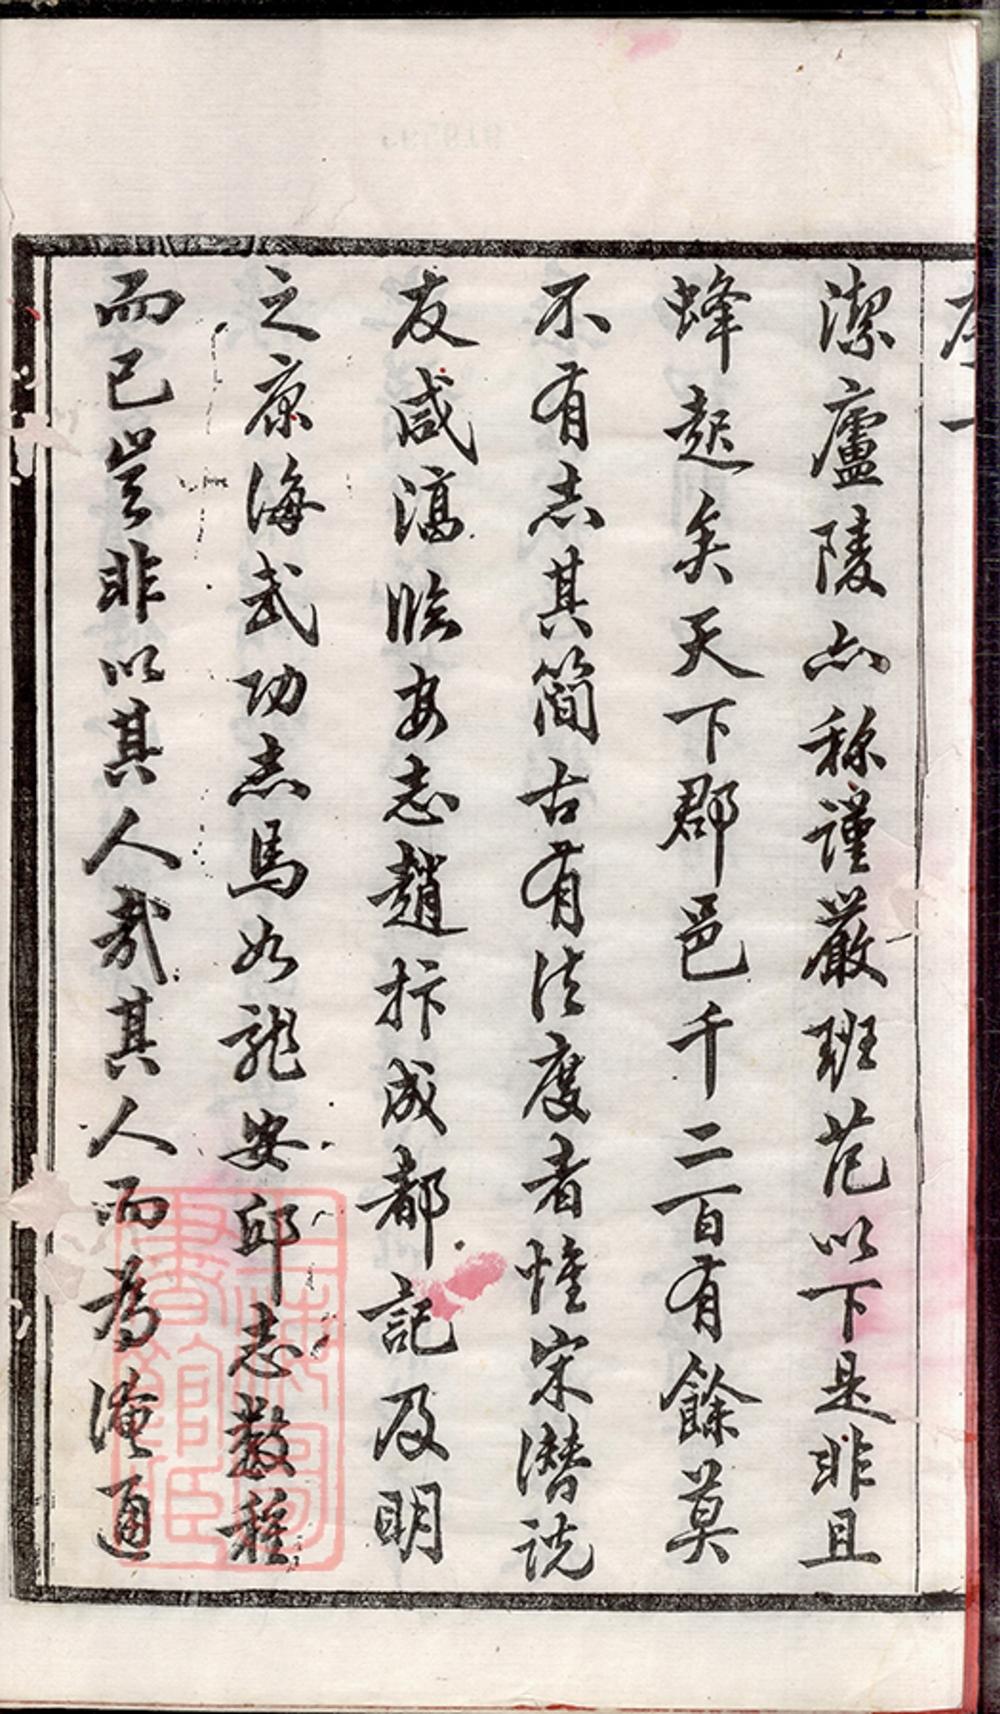 序一
潔廬陵亦称謹嚴班范以下是非且
蜂起矣天下郡邑千二百有餘莫
不有志其簡古有法度者惟宋潛說
友咸淳臨安志趙抃成都記及明
之康海武功志馬如龍安邱志數種
而已豈非以其人哉其人而爲淹通
上海圖書館藏